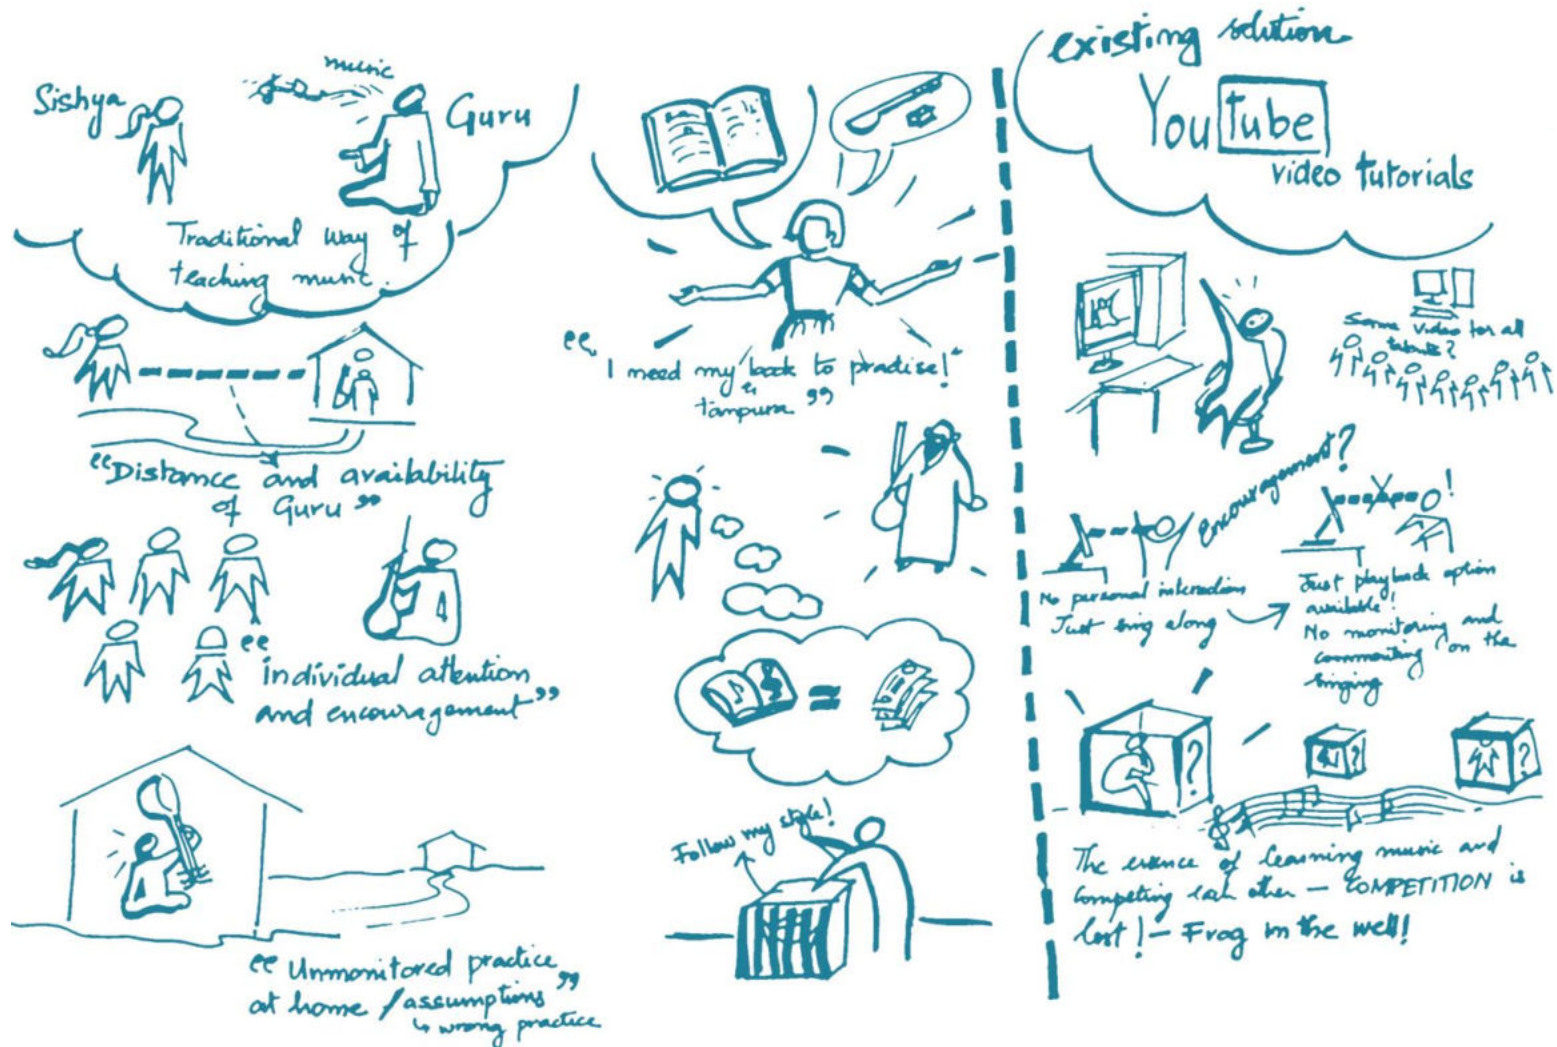 Sishya
music
Guru
Traditional way of
teaching music.
"Distance and availability
of Guru"
"Individual attention
and encouragement"
"Unmonitored practice
at home / assumptions"
↳ wrong practice
"I need my book to practise!
&
tampura"
Follow my style!
existing solution
YouTube
video tutorials
Same video for all
talents?
Encouragement?
No personal interaction
Just sing along
Just playback option
available!
No monitoring and
commenting on the
singing
?
?
?
The essence of learning music and
competing each other – COMPETITION is
lost! – Frog in the well!